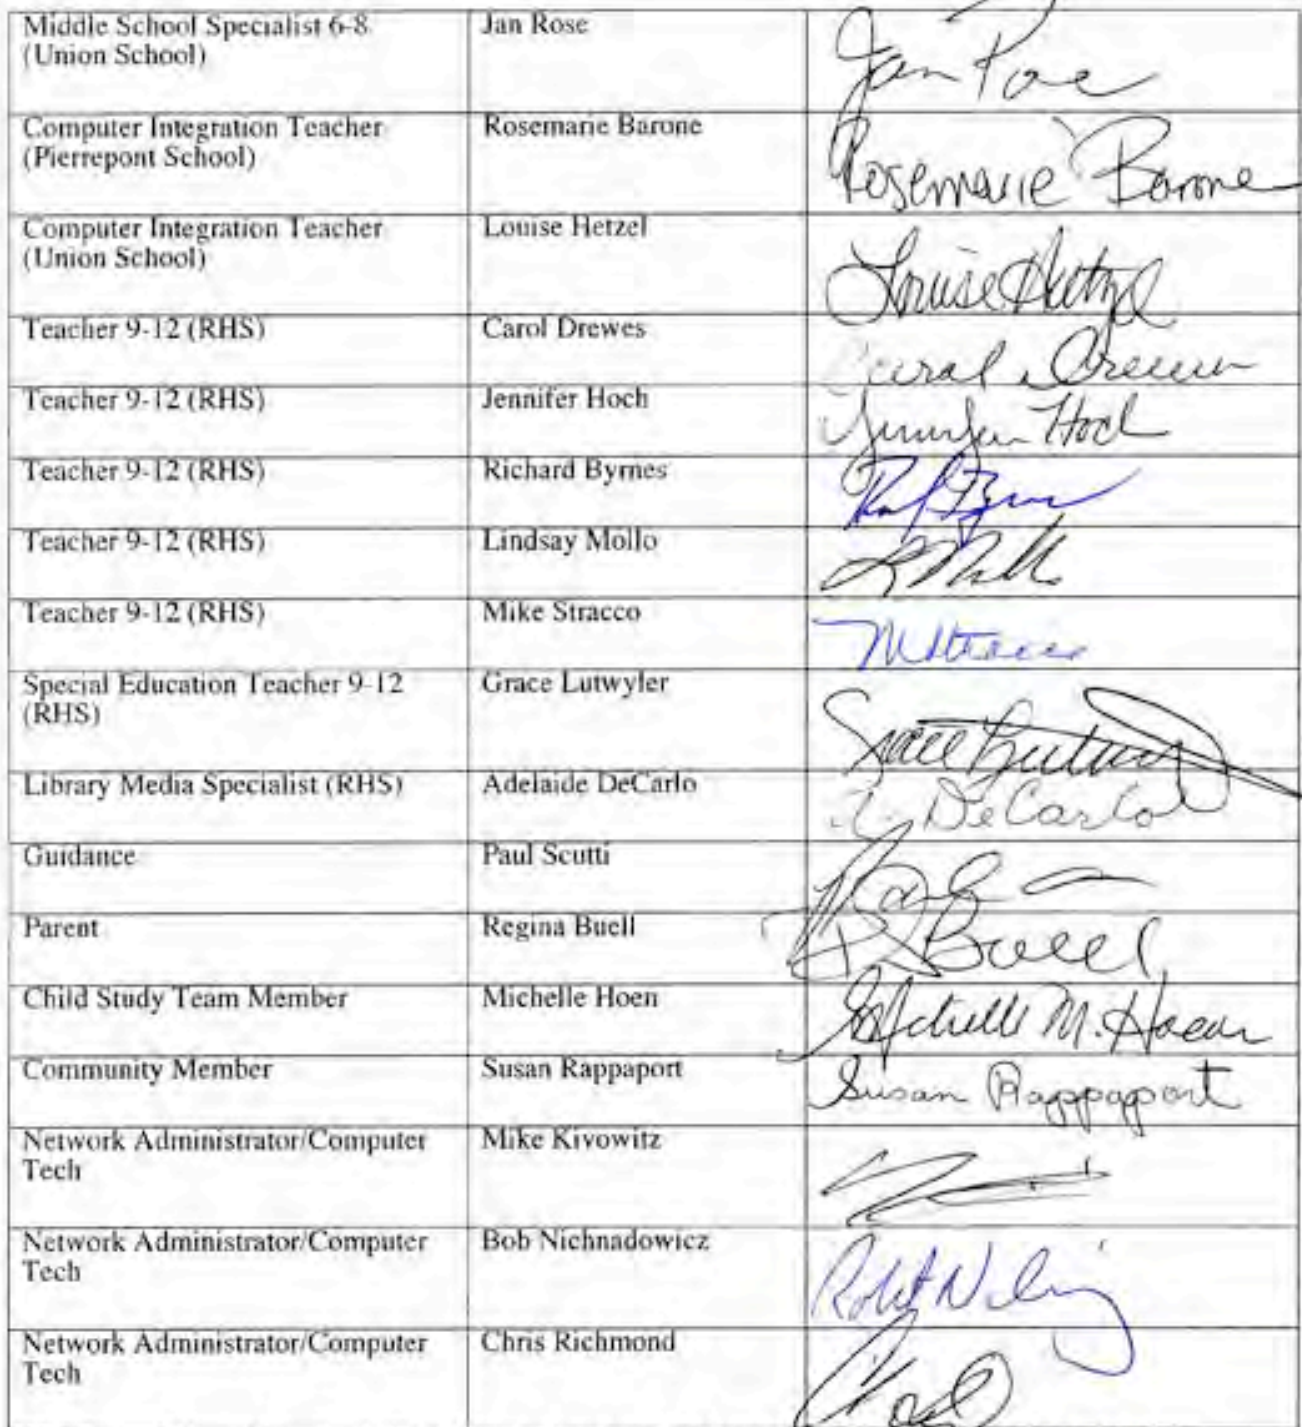 Middle School Specialist 6-8 Jan Rose
(Union School)
Jan Rose
Computer Integration Teacher Rosemarie Barone
(Pierrepont School)
Rosemarie Barone
Computer Integration Teacher Louise Hetzel
(Union School)
Louise Hetzel
Teacher 9-12 (RHS) Carol Drewes
Carol Drewes
Teacher 9-12 (RHS) Jennifer Hoch
Jennifer Hoch
Teacher 9-12 (RHS) Richard Byrnes
Teacher 9-12 (RHS) Lindsay Mollo
L Mollo
Teacher 9-12 (RHS) Mike Stracco
M Stracco
Special Education Teacher 9-12 Grace Lutwyler
(RHS)
Grace
Library Media Specialist (RHS) Adelaide DeCarlo
A. DeCarlo
Guidance Paul Scutti
Parent Regina Buell
R Buell
Child Study Team Member Michelle Hoen
Michelle M. Hoen
Community Member Susan Rappaport
Susan Rappaport
Network Administrator/Computer Mike Kivowitz
Tech
Network Administrator/Computer Bob Nichnadowicz
Tech
Robert
Network Administrator/Computer Chris Richmond
Tech